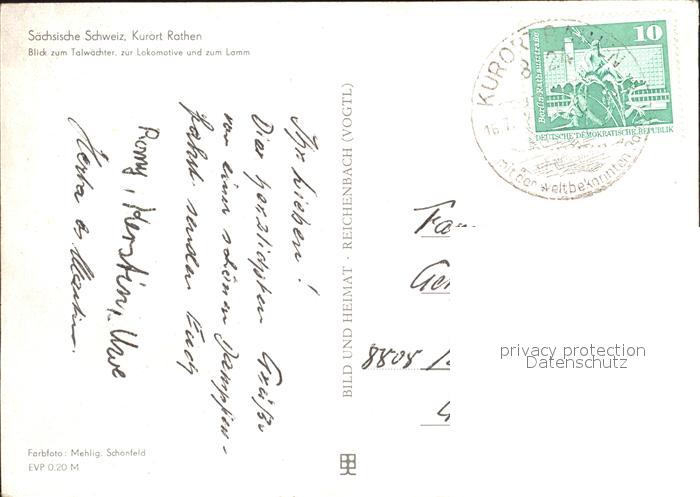 Sächsische Schweiz, Kurort Rathen
Blick zum Talwächter, zur Lokomotive und zum Lamm
Ihr Lieben!
Die herzlichsten Grüße
von einer schönen Dampfer-
fahrt senden Euch
Romy, Kerstin, Uwe
Herta &
Farbfoto: Mehlig, Schönfeld
EVP 0.20 M
BILD UND HEIMAT · REICHENBACH (VOGTL)
KURORT
mit der weltbekannten
10
Berlin, Rathausstraße
DEUTSCHE DEMOKRATISCHE REPUBLIK
Fa
Ger
privacy protection
Datenschutz